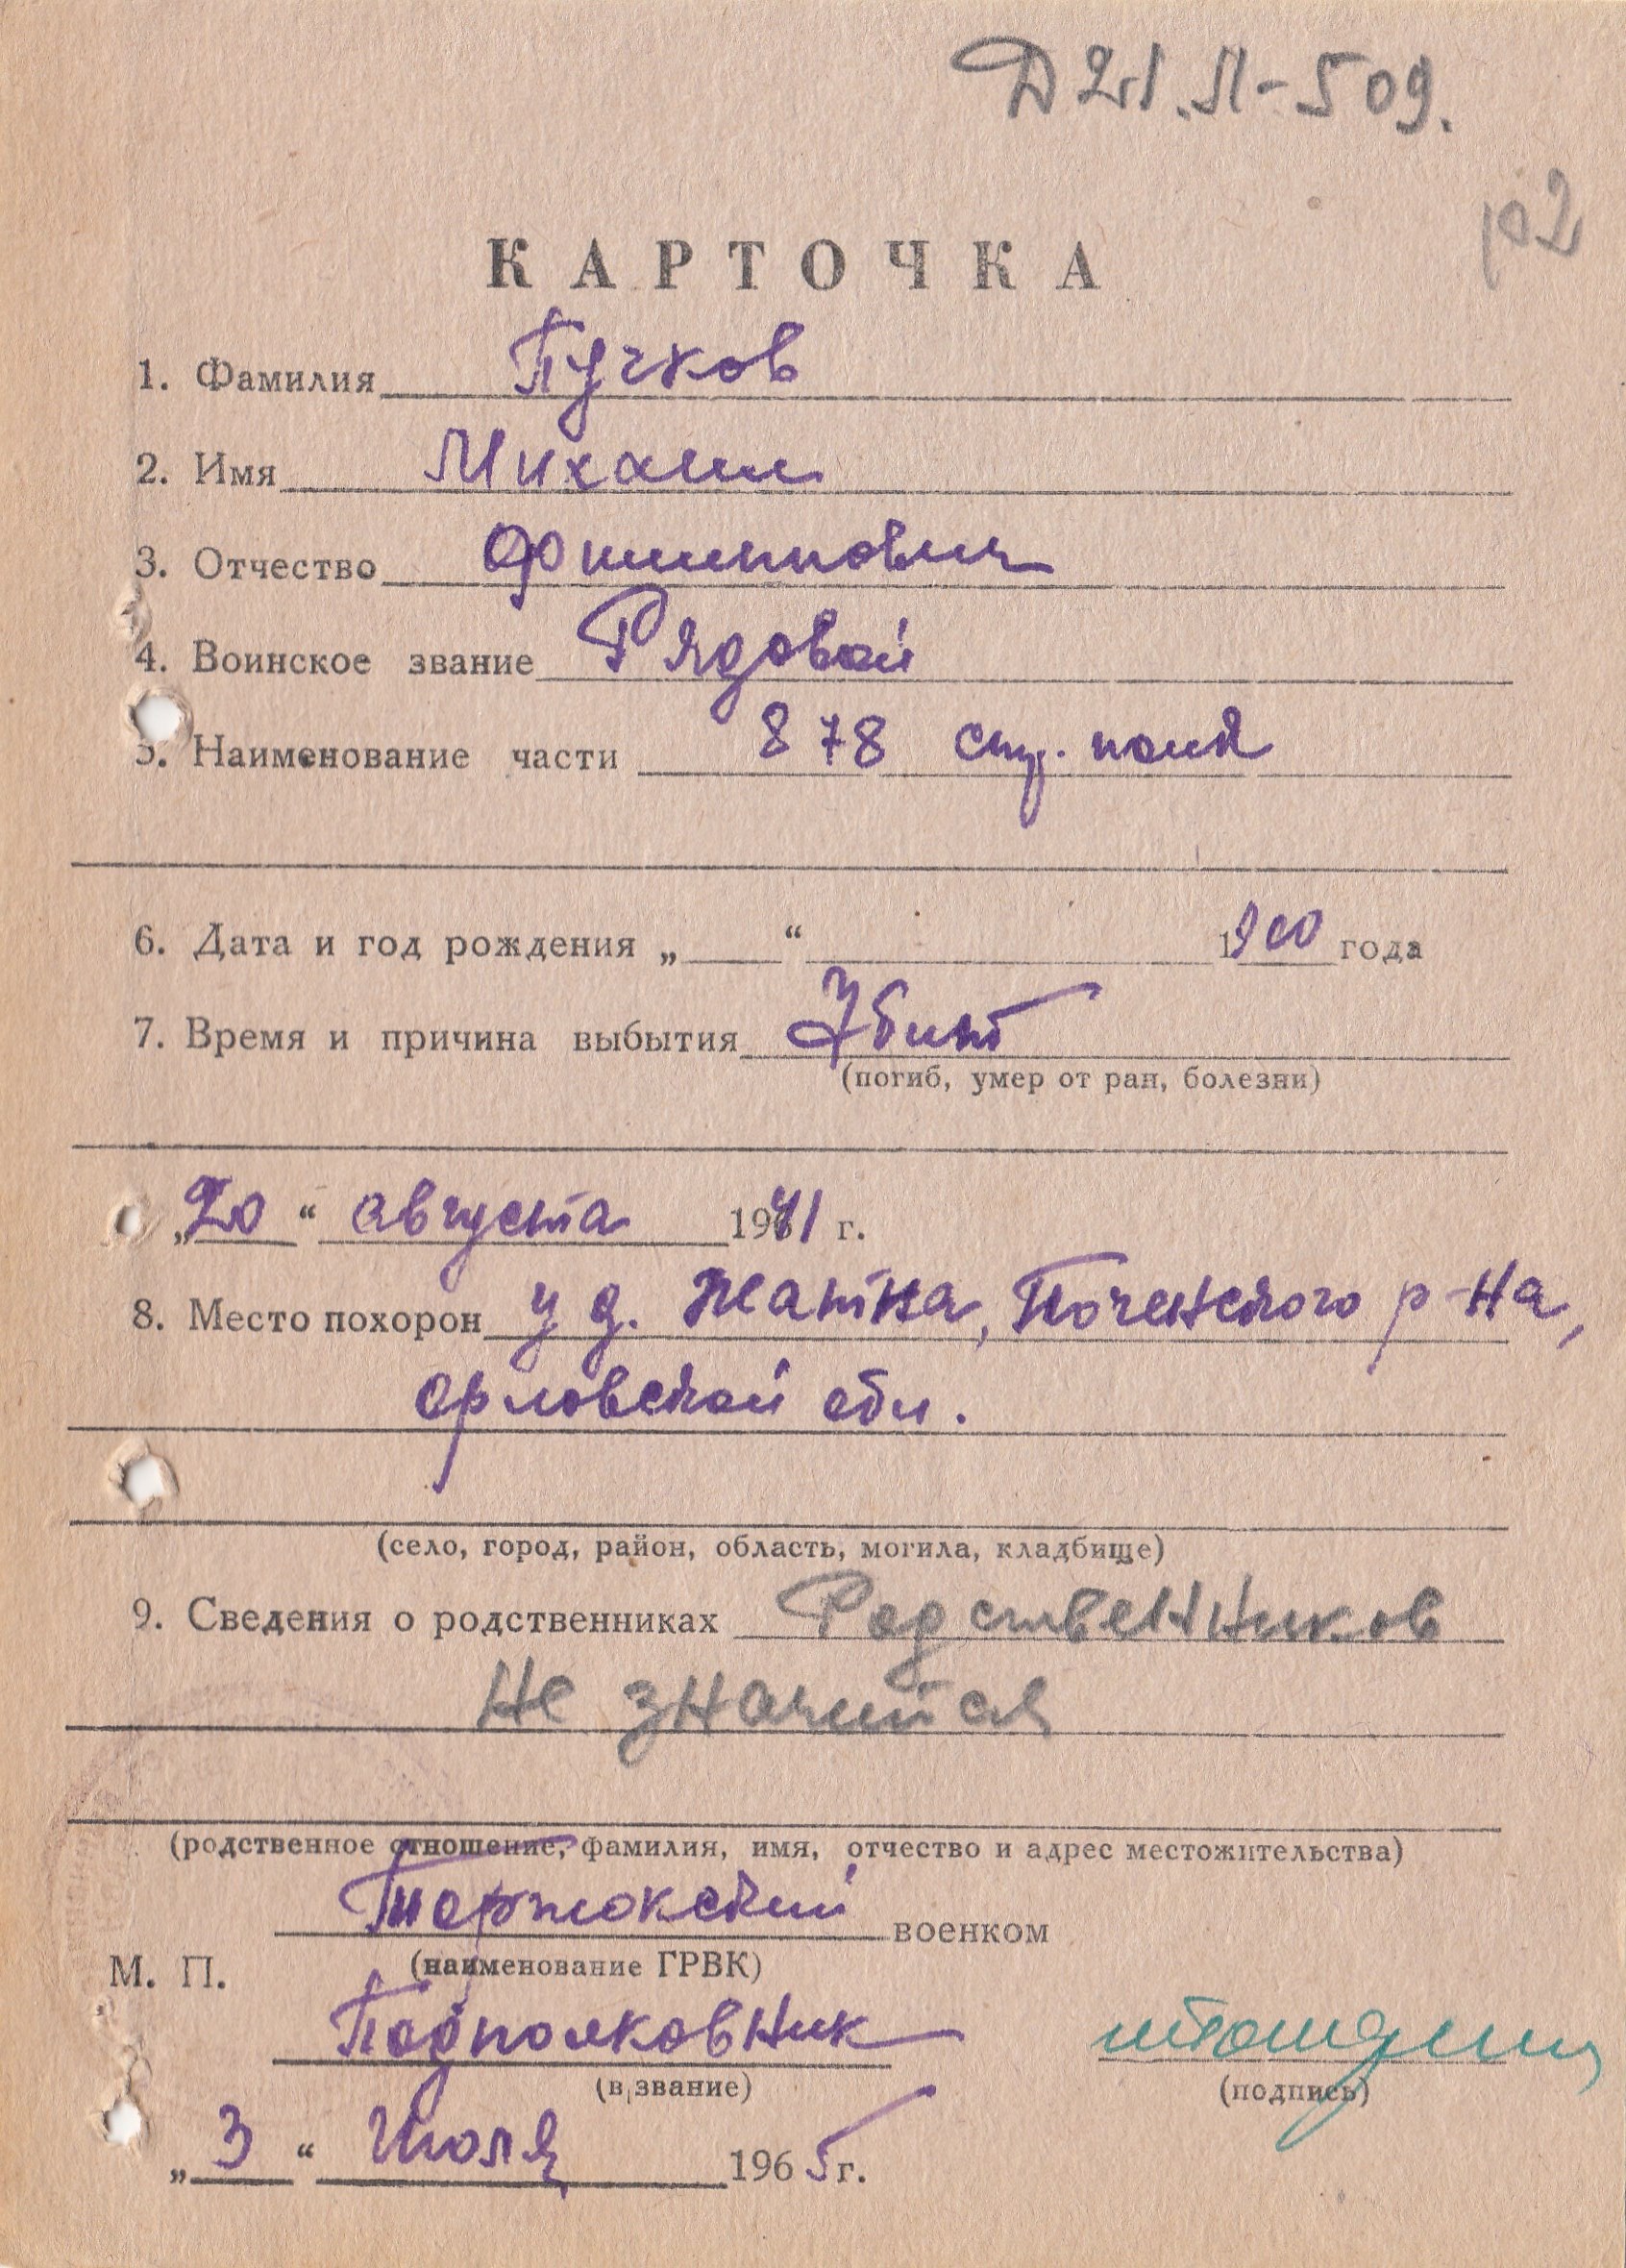 Д 21. Л-509.
102
КАРТОЧКА
1. Фамилия Пучков
2. Имя Михаил
3. Отчество Филиппович
4. Воинское звание Рядовой
5. Наименование части 878 стр. полк
6. Дата и год рождения „ “ 1900 года
7. Время и причина выбытия Убит
(погиб, умер от ран, болезни)
„20“ августа 1941 г.
8. Место похорон у д. Жатна, Поченского р-на,
орловской обл.
(село, город, район, область, могила, кладбище)
9. Сведения о родственниках Родственников
не значится
(родственное отношение, фамилия, имя, отчество и адрес местожительства)
Торжокский военком
М. П. (наименование ГРВК)
Подполковник
(в звание) (подпись)
„3“ Июля 1965 г.